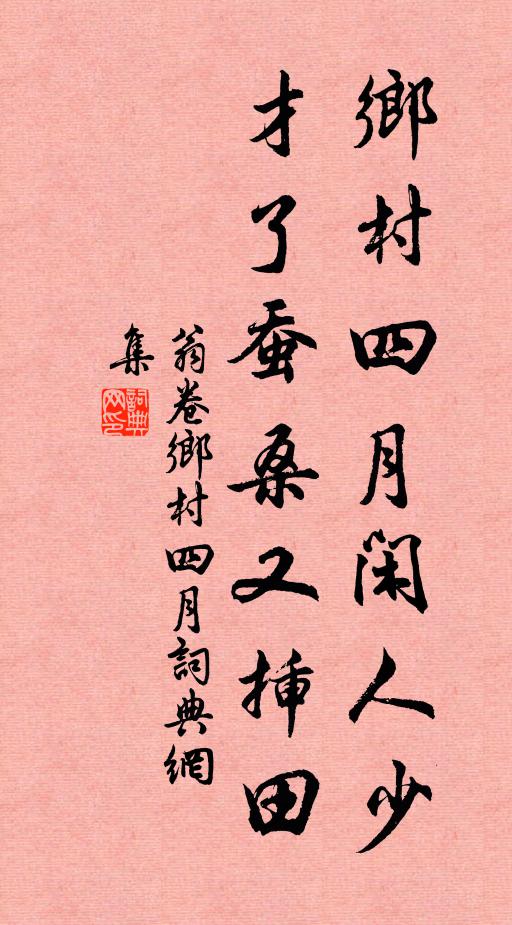 鄉村四月閑人少
才了蚕桑又揷田
翁卷鄉村四月詞典網
集
詞典网印